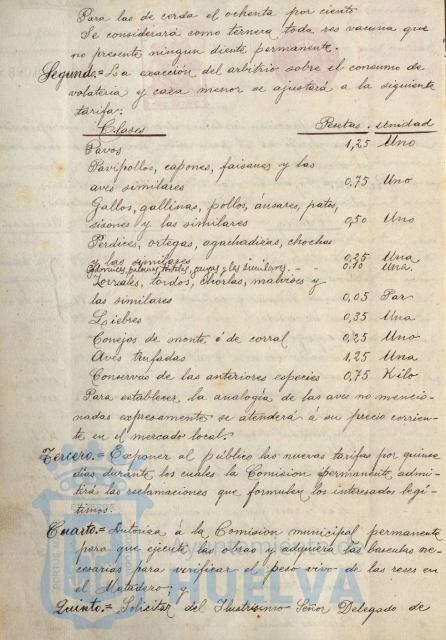 Para las de cerda el ochenta por ciento
Se considerará como ternera toda res vacuna que
no presente ningun diente permanente.
Segundo.= La exacción del arbitrio sobre el consumo de
volatería y caza menor se ajustará a la siguiente
tarifa:
Clases Pesetas. Unidad
Pavos 1,25 Uno
Pavipollos, capones, faisanes y las
aves similares 0,75 Uno
Gallos, gallinas, pollos, ánsares, patos,
sisones y las similares 0,50 Uno
Perdices, ortegas, agachadizas, chochas
y las similares 0,25 Una
palomas, tórtolas, y las similares 0.10 Una.
Zorzales, tordos, chorlas, malvises y
las similares 0,05 Par
Liebres 0,35 Una
Conejos de monte ó de corral 0,25 Uno
Aves trufadas 1,25 Una
Conservas de las anteriores especies 0,75 Kilo
Para establecer la analogía de las aves no mencio-
nadas expresamente se atenderá á su precio corrien-
te en el mercado local.
Tercero.= Exponer al público las nuevas tarifas por quince
dias durante los cuales la Comision permanente admi-
tirá las reclamaciones que formulen los interesados legí-
timos.
Cuarto.= Autoriza á la Comision municipal permanente
para que ejecute las obras y adquiera las basculas ne-
cesarias para verificar el peso vivo de las reses en
el Matadero; y
Quinto.= Solicitar del Ilustrisimo Señor Delegado de
HUELVA